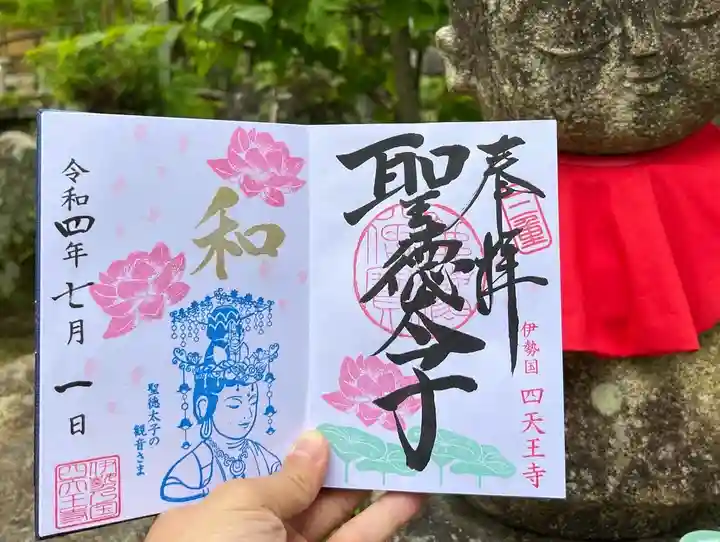 奉拝
三重
聖徳太子
伊勢国 四天王寺
和
聖徳太子の
観音さま
令和四年七月一日
伊勢国
四天王寺